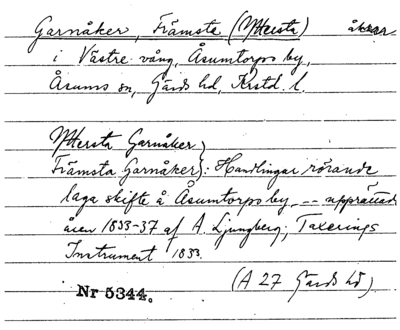 Garnåker, Främsta (Yttersta) åkrar
i Västre vång, Åsumtorps by,
Åsums sn, Gärds hd, Krstd. l.
Yttersta Garnåker
Främsta Garnåker}: Handlingar rörande
laga skifte å Åsumtorps by -- upprättad
åren 1833-37 af A. Ljungberg; Taxerings
Instrument 1833.
(A 27 Gärds hd)
Nr 5344.